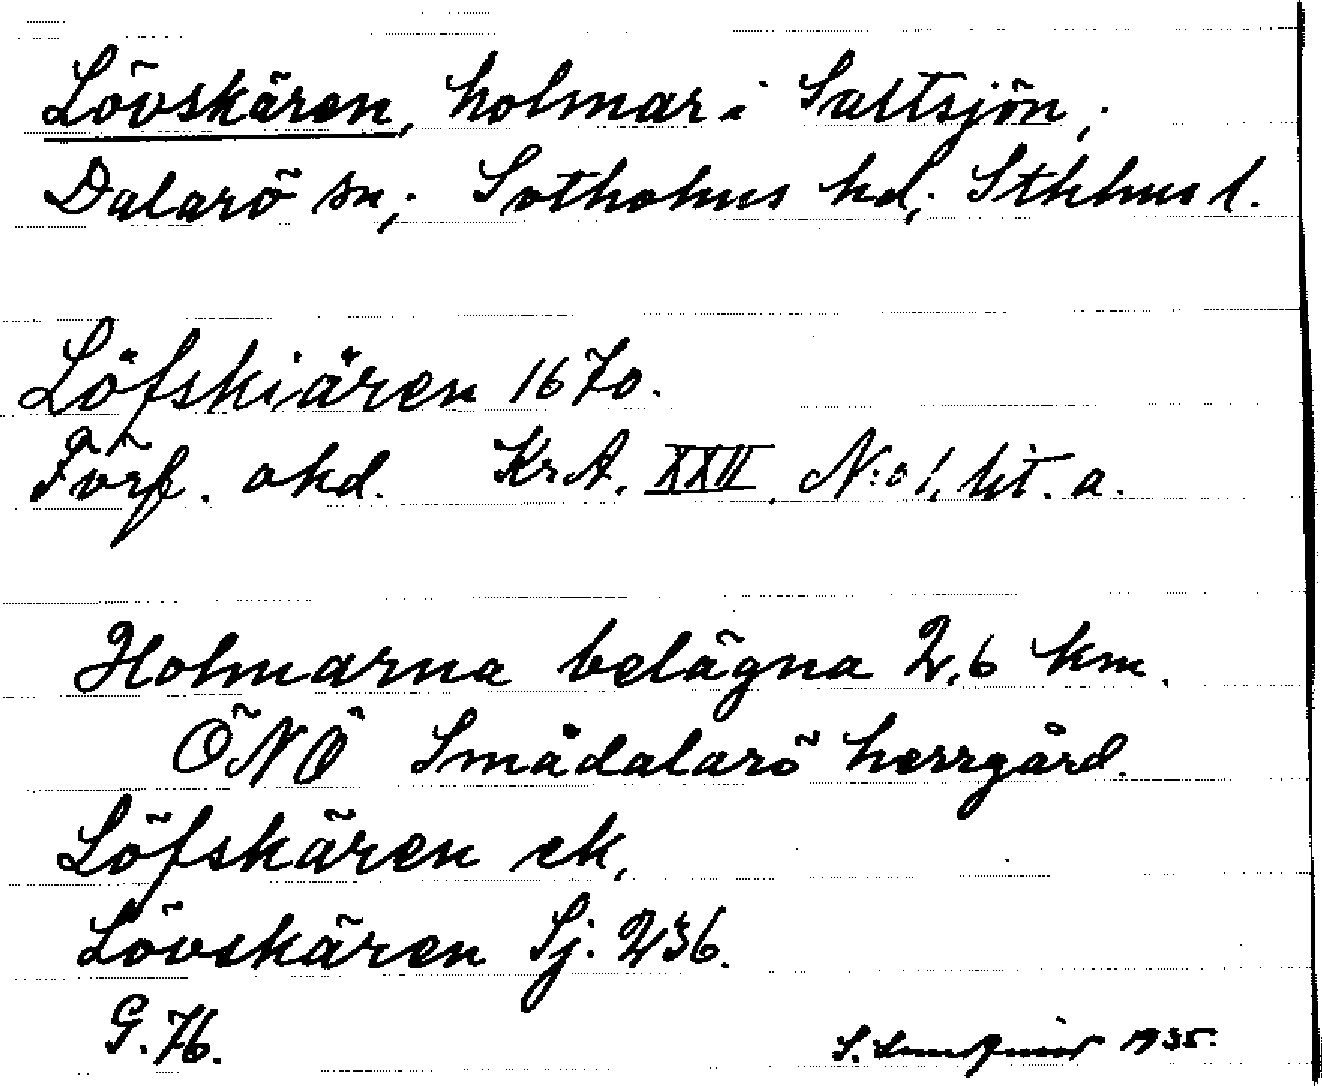 Lövskären, holmar i Saltsjön,
Dalarö sn, Sotholms hd, Sthlms l.
Löfskiären 1670.
Förf. okd. KrA. XXVI, N:o 1, lit. a.
Holmarna belägna 2,6 km.
ÖNÖ Smådalarö herrgård.
Löfskären ek.
Lövskären Sj. 236.
G. 76.
S. Lundqvist 1935.